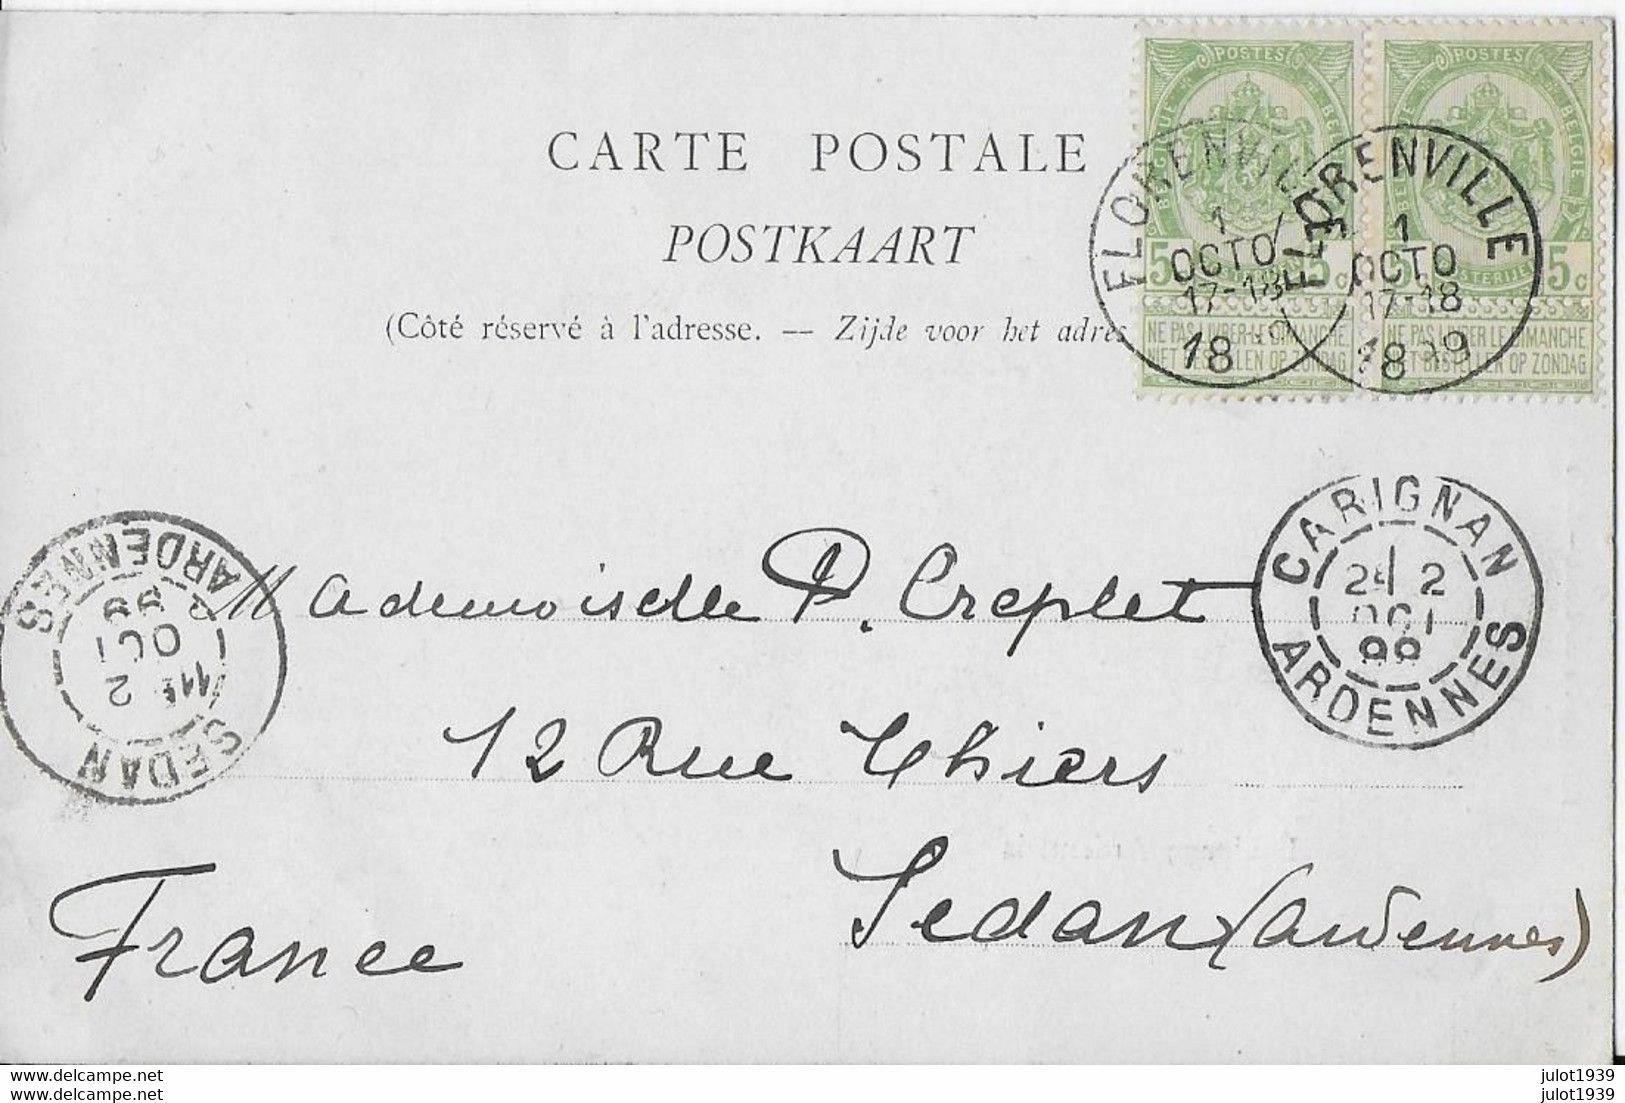 CARTE POSTALE
POSTKAART
(Côté réservé à l'adresse. — Zijde voor het adres
POSTES
BELGIQUE
BELGIE
5 c
NE PAS LIVRER LE DIMANCHE
NIET BESTELLEN OP ZONDAG
POSTES
BELGIQUE
BELGIE
5 c
NE PAS LIVRER LE DIMANCHE
NIET BESTELLEN OP ZONDAG
FLORENVILLE
1
OCTO
17-18
18
FLORENVILLE
1
OCTO
17-18
18 99
CARIGNAN
2
OCT
99
ARDENNES
SEDAN
2
OCT
99
ARDENNES
Mademoiselle P. Creplet
12 Rue Thiers
Sedan (Ardennes)
France
www.delcampe.net
www.delcampe.net
julot1939
julot1939